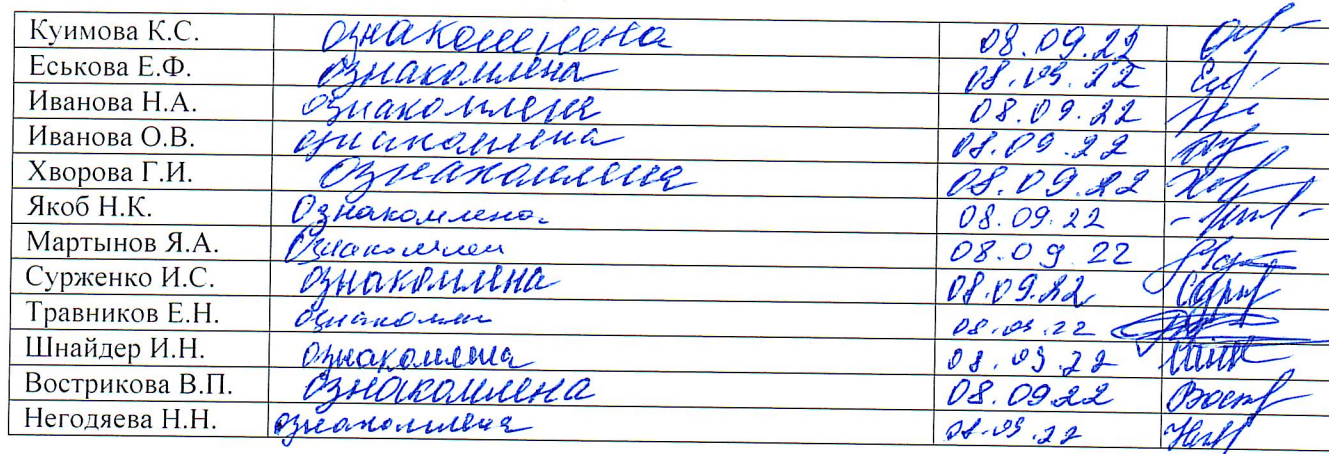 Куимова К.С. ознакомлена 08.09.22
Еськова Е.Ф. ознакомлена 08.09.22
Иванова Н.А. ознакомлена 08.09.22
Иванова О.В. ознакомлена 08.09.22
Хворова Г.И. Ознакомлена 08.09.22
Якоб Н.К. Ознакомлена. 08.09.22
Мартынов Я.А. Ознакомлен 08.09.22
Сурженко И.С. ознакомлена 08.09.22
Травников Е.Н. ознакомлен 08.09.22
Шнайдер И.Н. ознакомлена 08.09.22
Вострикова В.П. ознакомлена 08.09.22
Негодяева Н.Н. ознакомлена 08.09.22